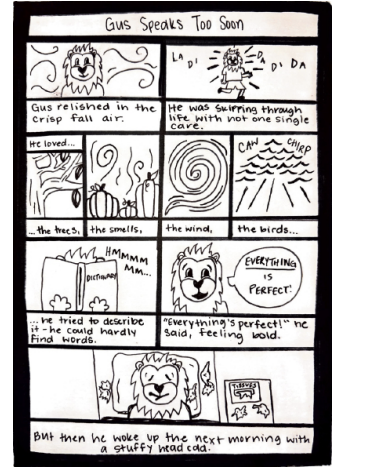 Gus Speaks Too Soon
LA
DI
DA
DI
DA
Gus relished in the
crisp fall air.
He was skipping through
life with not one single
care.
He loved...
CAW
CHIRP
...the trees,
the smells,
the wind,
the birds...
HMMMM
MM...
DICTIONARY
EVERYTHING
IS
PERFECT!
...he tried to describe
it-he could hardly
find words.
"Everything's perfect!" he
said, feeling bold.
TISSUES
But then he woke up the next morning with
a stuffy head cold.